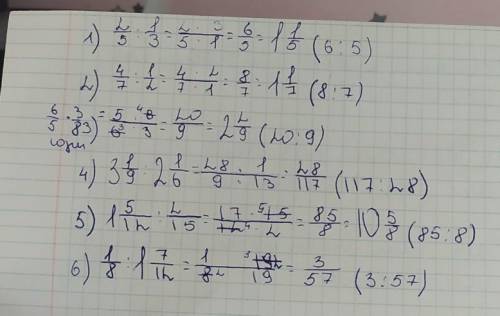 1) 2/5 : 1/3 = 2 · 3/5 · 1 = 6/5 = 1 1/5 (6:5)
2) 4/7 : 1/2 = 4 · 2/7 · 1 = 8/7 = 1 1/7 (8:7)
3) = 20/9 = 2 2/9 (20:9)
4) 3 1/9 : 2 1/6 = 28/9 · 1/13 = 28/117 (117:28)
5) 1 5/12 : 2/15 = 17 · 15/12 · 2 = 85/8 = 10 5/8 (85:8)
6) 1/8 : 1 7/12 = 3/57 (3:57)